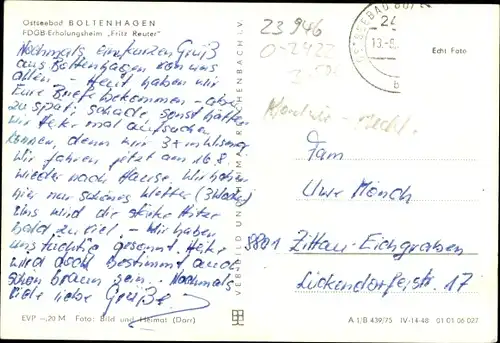 Ostseebad BOLTENHAGEN
FDGB-Erholungsheim „Fritz Reuter"
Nochmals einen kurzen Gruß
aus Boltenhagen von uns
allen - Heut haben wir
Eure Briefe bekommen - aber
zu spät, schade, sonst hätten
wir Heike mal aufsuchen
können, denn wir 3x in Wismar
Wir fahren jetzt am 16.8.
wieder nach Hause. Wir haben
hier nur schönes Wetter (3 Wochen)
uns wird die starke Hitze
bald zu viel. - Wir haben
uns tüchtig gesonnt. Heike
wird doch bestimmt auch
schon braun sein. Nochmals
liebe Grüße
EVP -,20 M Foto: Bild und Heimat (Darr)
VERLAG BILD UND HEIMAT REICHENBACH I. V.
23946
0-2422
OSTSEEBAD BOLT
24
13.-8.
b
Echt Foto
Fam
Uwe Mönch
8801 Zittau-Eichgraben
Lückendorferstr. 17
A 1/B 439/75 IV-14-48 01 01 06 027